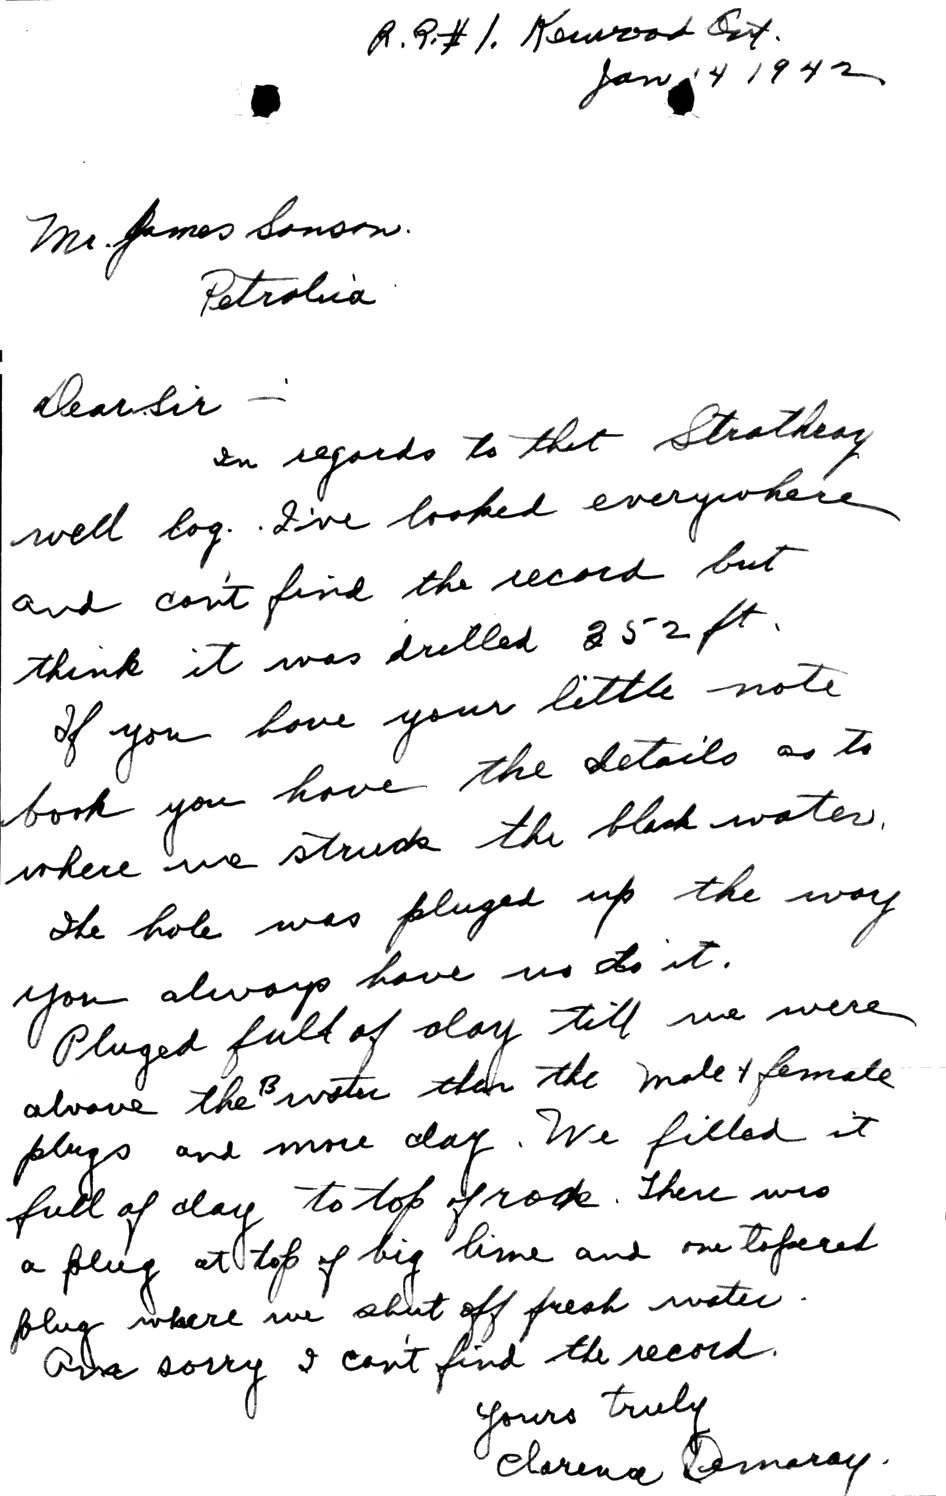 R.R.#1. Kerwood Ont.
Jan 14 1942
Mr. James Sonson.
Petrolia
Dear Sir —
In regards to that Strathroy
well log. I've looked everywhere
and can't find the record but
think it was drilled 352 ft.
If you have your little note
book you have the details as to
where we struck the black water.
The hole was pluged up the way
you always have us do it.
Pluged full of clay till we were
above the B water then the male + female
plugs and more clay. We filled it
full of clay to top of rock. There was
a plug at top of big lime and one tapered
plug where we shut off fresh water.
Am sorry I can't find the record.
Yours truly
Clarence Demaray.